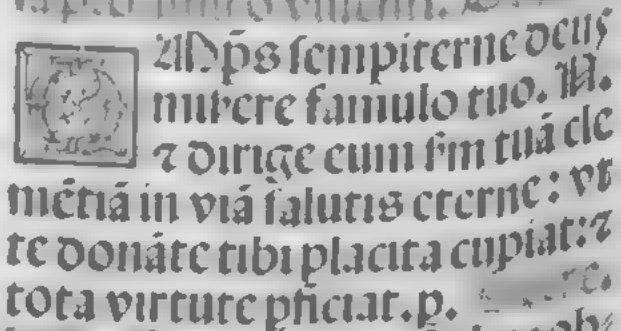 Mp̄s sempiterne deus
miserere famulo tuo. N.
⁊ dirige eum s̄m tuā cle
mētiā in viā salutis eterne: vt
te donāte tibi placita cupiat: ⁊
tota virtute p̄ficiat. p.